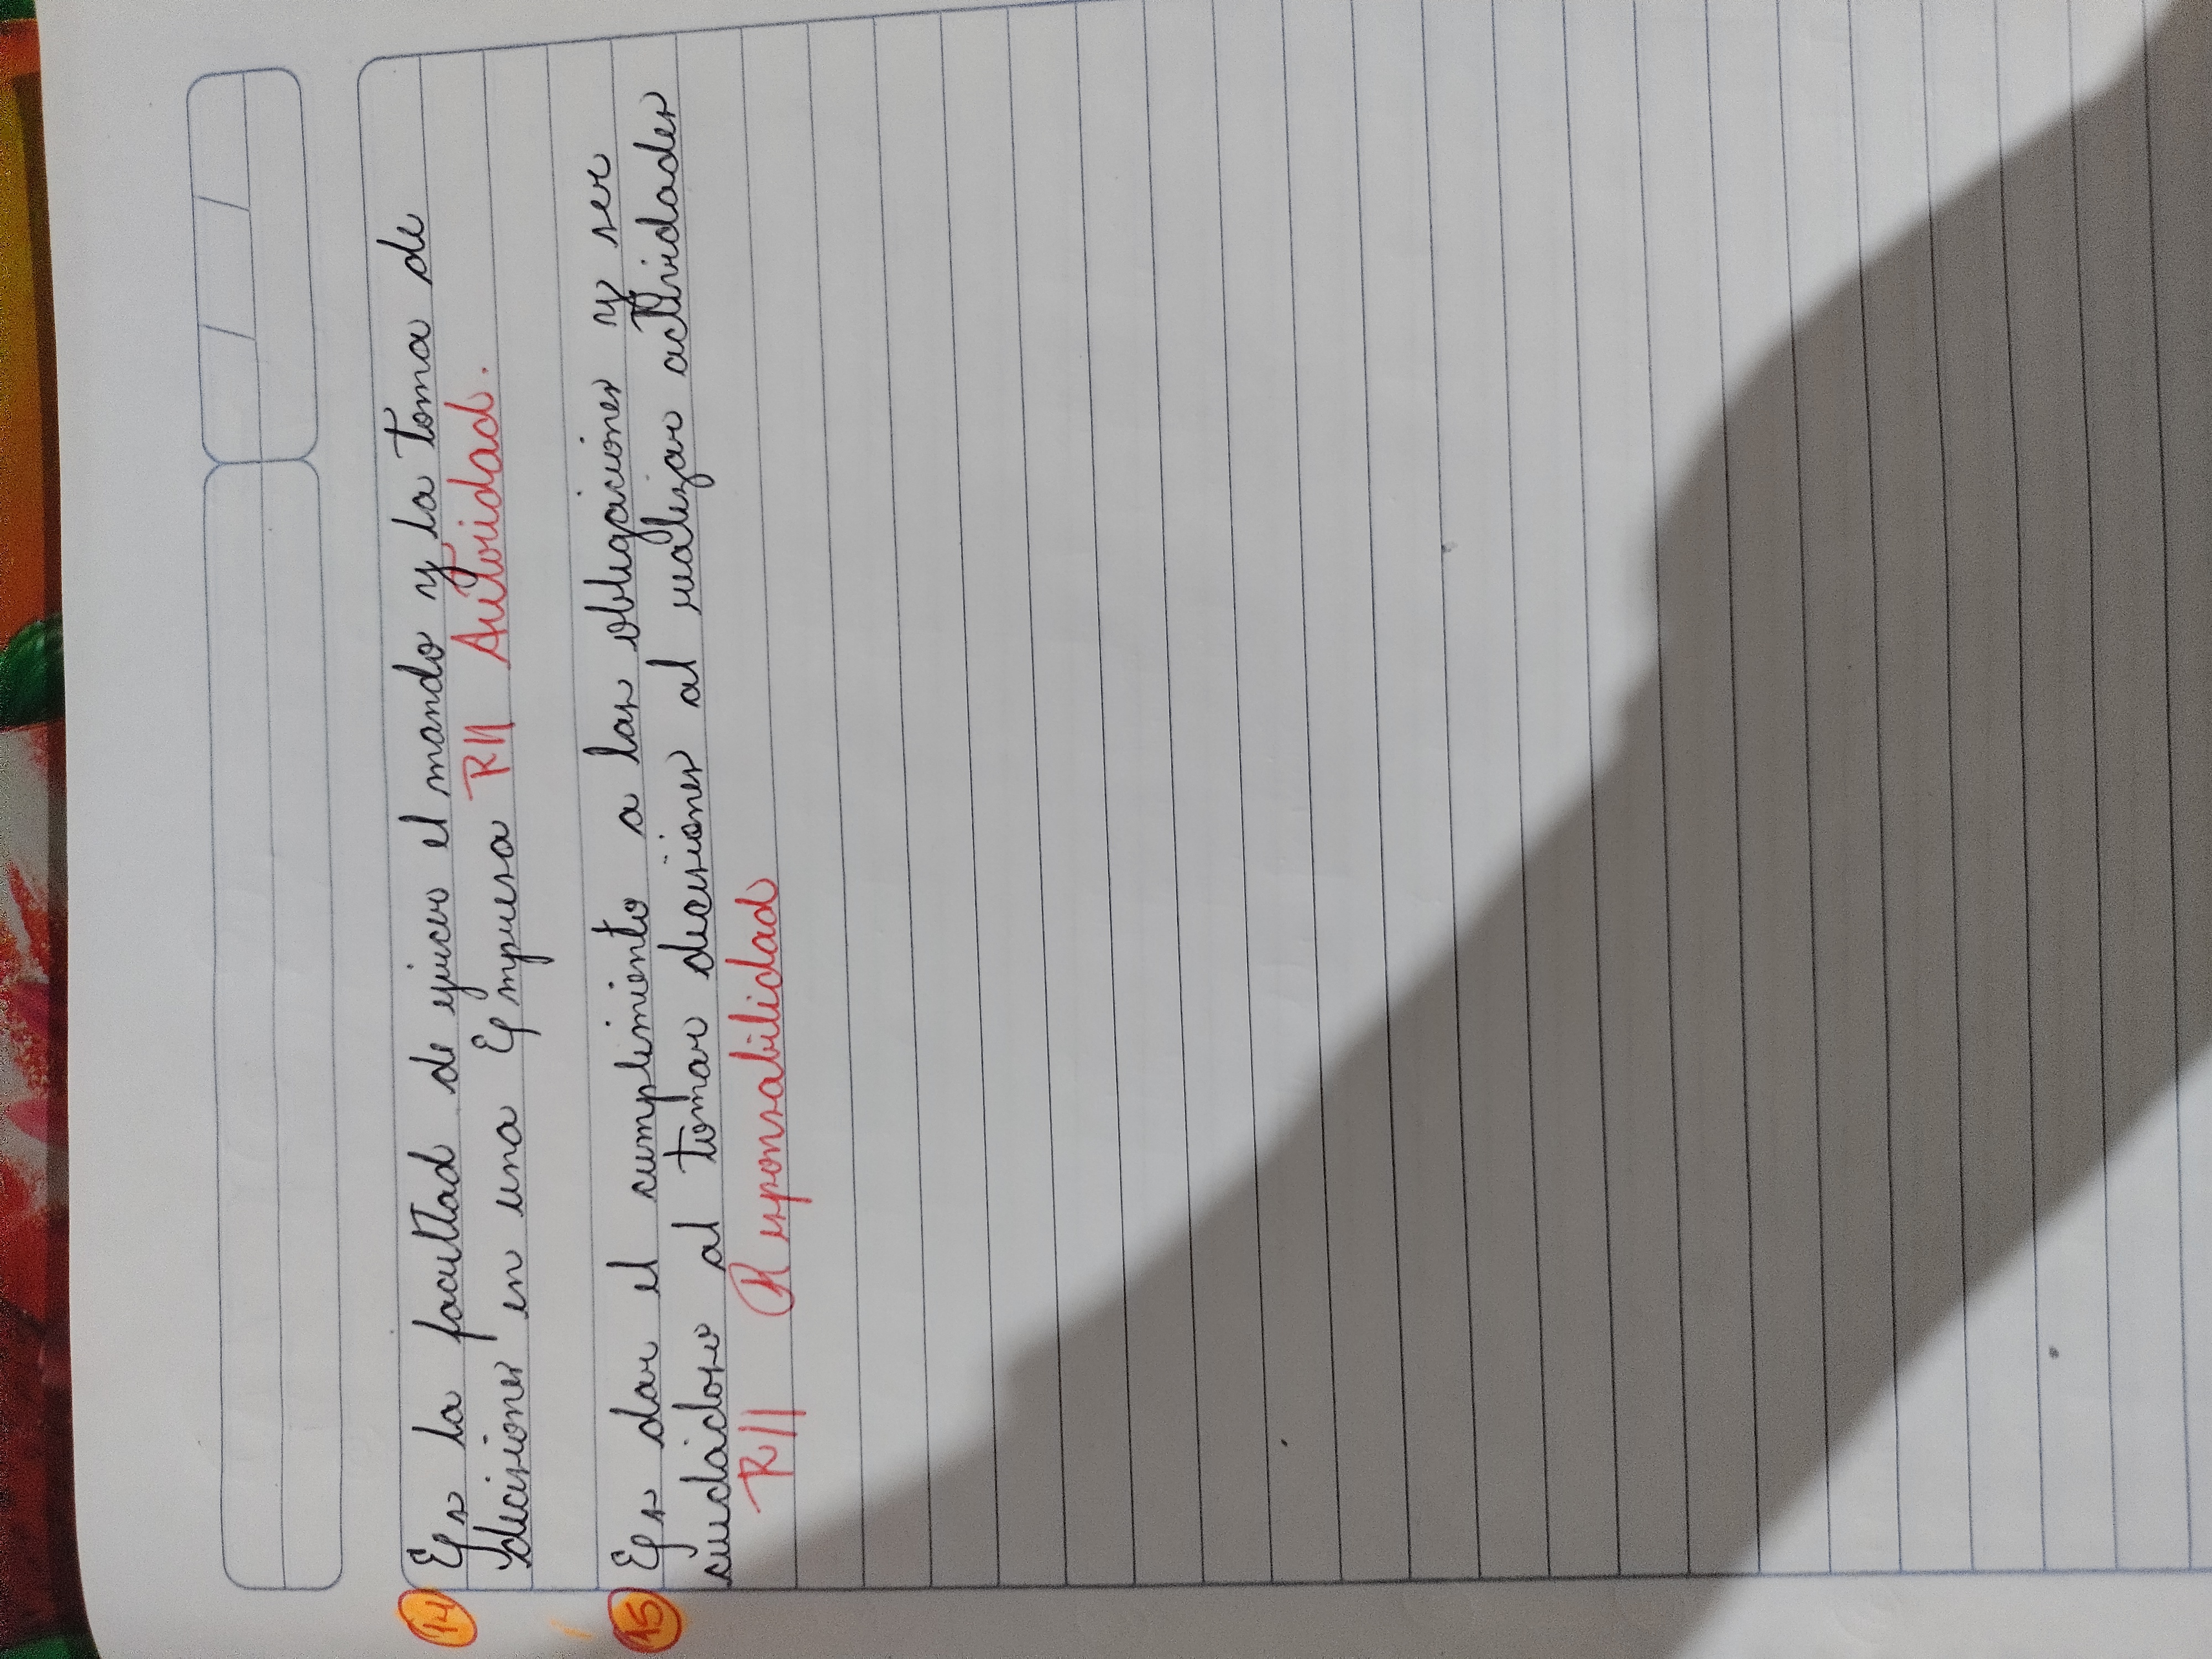 14 Es la facultad de ejercer el mando y la toma de
decisiones en una Empresa R// Autoridad.
15 Es dar el cumplimiento a las obligaciones y ser
cuidadoso al tomar decisiones al realizar actividades
R// Responsabilidad